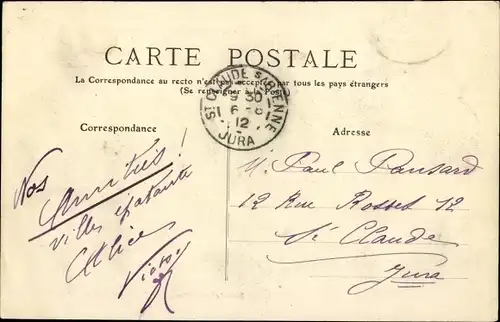 CARTE POSTALE
La Correspondance au recto n'est pas acceptée par tous les pays étrangers
(Se renseigner à la Poste)
ST CLAUDE S/ BIENNE
9 30
6 - 8
12
JURA
Correspondance
Adresse
Nos
Amitiés!
Alice
Victor
M. Paul Pansard
12 Rue Rosset 12
St Claude
Jura